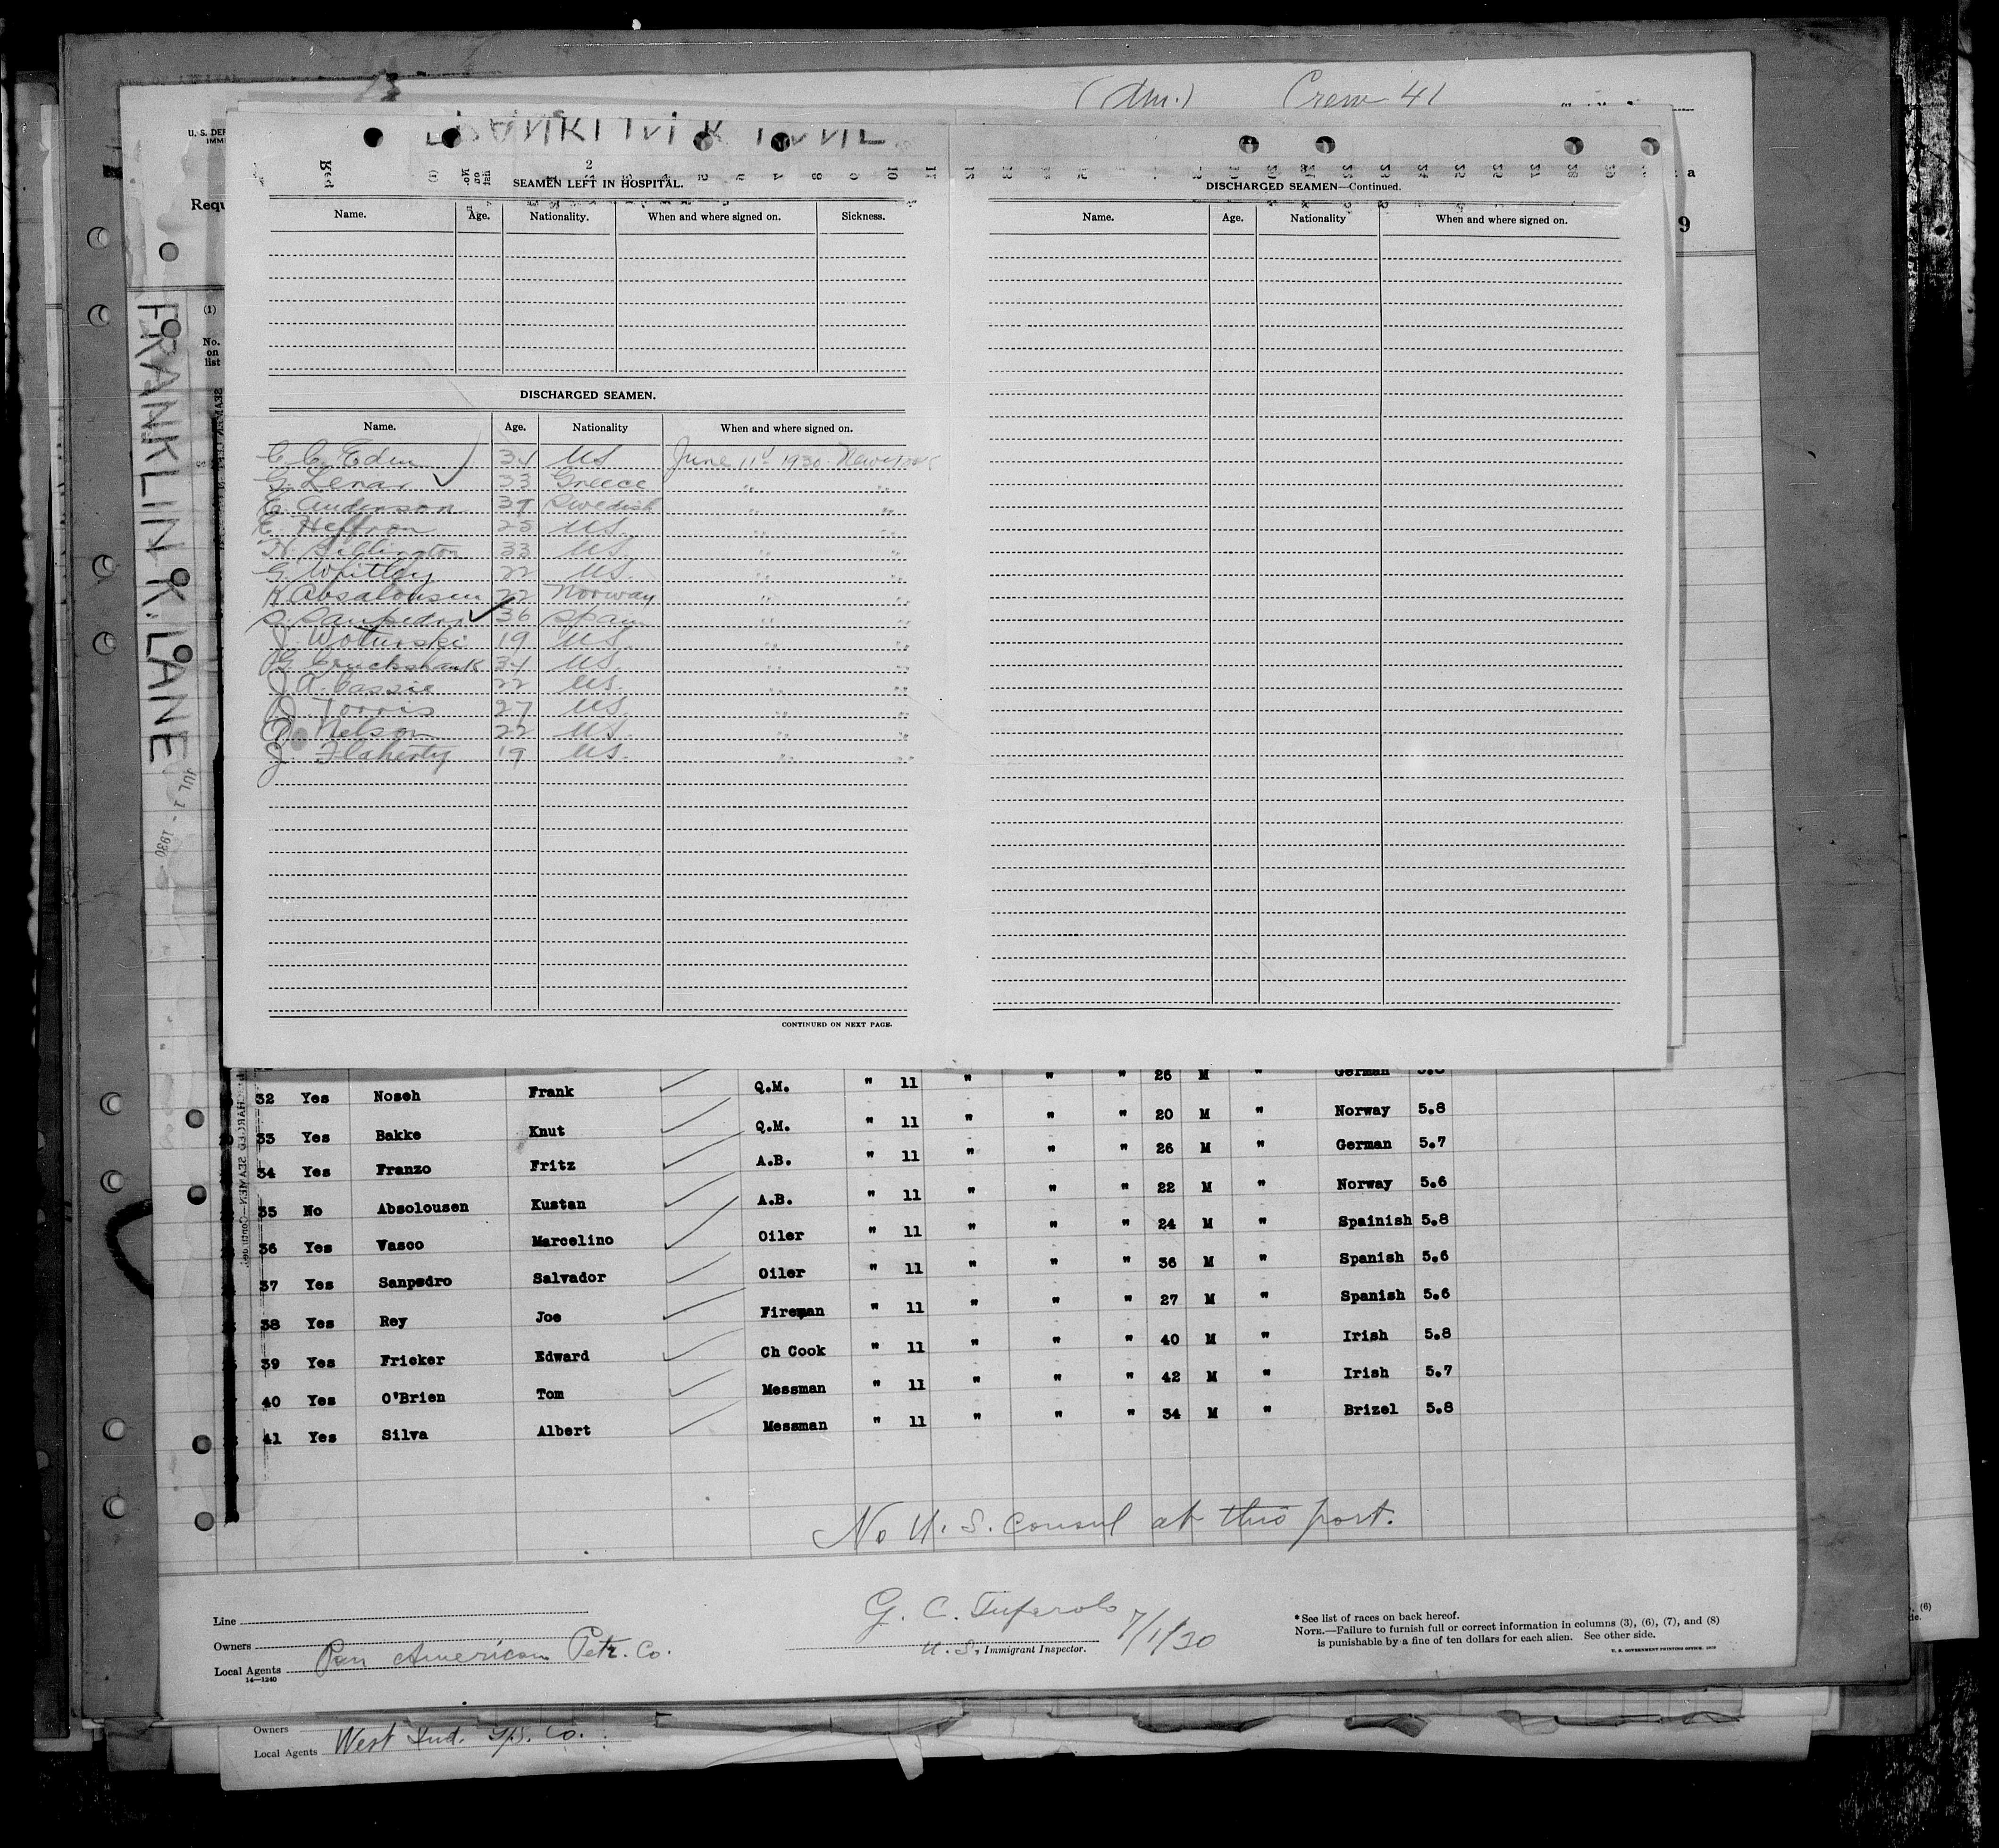 (Am.) Crew 41
U. S. DEP
IMM
Requ
9
(1)
No.
on
list
FRANKLIN K. LANE
JUL 1 - 1930
SEAMEN LEFT IN HOSPITAL.
Name. Age. Nationality. When and where signed on. Sickness.
DISCHARGED SEAMEN.
Name. Age. Nationality When and where signed on.
C. C. Eden 34 US June 11th 1930 New York
G. Lenar 33 Greece " "
C. Anderson 37 Swedish " "
C. Heffron 25 US. " "
H. Billington 33 US. " "
G. Whitley 22 US. " "
K Absalousen 22 Norway " "
S. Sanpedro 36 Spain " "
J. Woturski 19 US. " "
G. Cruckshank 34 US. " "
J. A. Cassie 22 US. " "
D. Torris 27 US. " "
O. Nelson 22 US. " "
J. Flaherty 19 US. " "
CONTINUED ON NEXT PAGE.
DISCHARGED SEAMEN—Continued.
Name. Age. Nationality When and where signed on.
32 Yes Noseh Frank Q.M. " 11 " " " 26 M " German 5.8
33 Yes Bakke Knut Q.M. " 11 " " " 20 M " Norway 5.8
34 Yes Franzo Fritz A.B. " 11 " " " 26 M " German 5.7
35 No Absolousen Kustan A.B. " 11 " " " 22 M " Norway 5.6
36 Yes Vasco Marcelino Oiler " 11 " " " 24 M " Spainish 5.8
37 Yes Sanpedro Salvador Oiler " 11 " " " 36 M " Spanish 5.6
38 Yes Rey Joe Fireman " 11 " " " 27 M " Spanish 5.6
39 Yes Fricker Edward Ch Cook " 11 " " " 40 M " Irish 5.8
40 Yes O'Brien Tom Messman " 11 " " " 42 M " Irish 5.7
41 Yes Silva Albert Messman " 11 " " " 34 M " Brizel 5.8
No U. S. Consul at this port.
Line
Owners
Local Agents Pan American Petr. Co.
14—1240
G. C.
7/1/30
U. S. Immigrant Inspector.
* See list of races on back hereof.
NOTE.—Failure to furnish full or correct information in columns (3), (6), (7), and (8)
is punishable by a fine of ten dollars for each alien. See other side.
U. S. GOVERNMENT PRINTING OFFICE
, (6)
de.
Owners
Local Agents West Ind. Co.